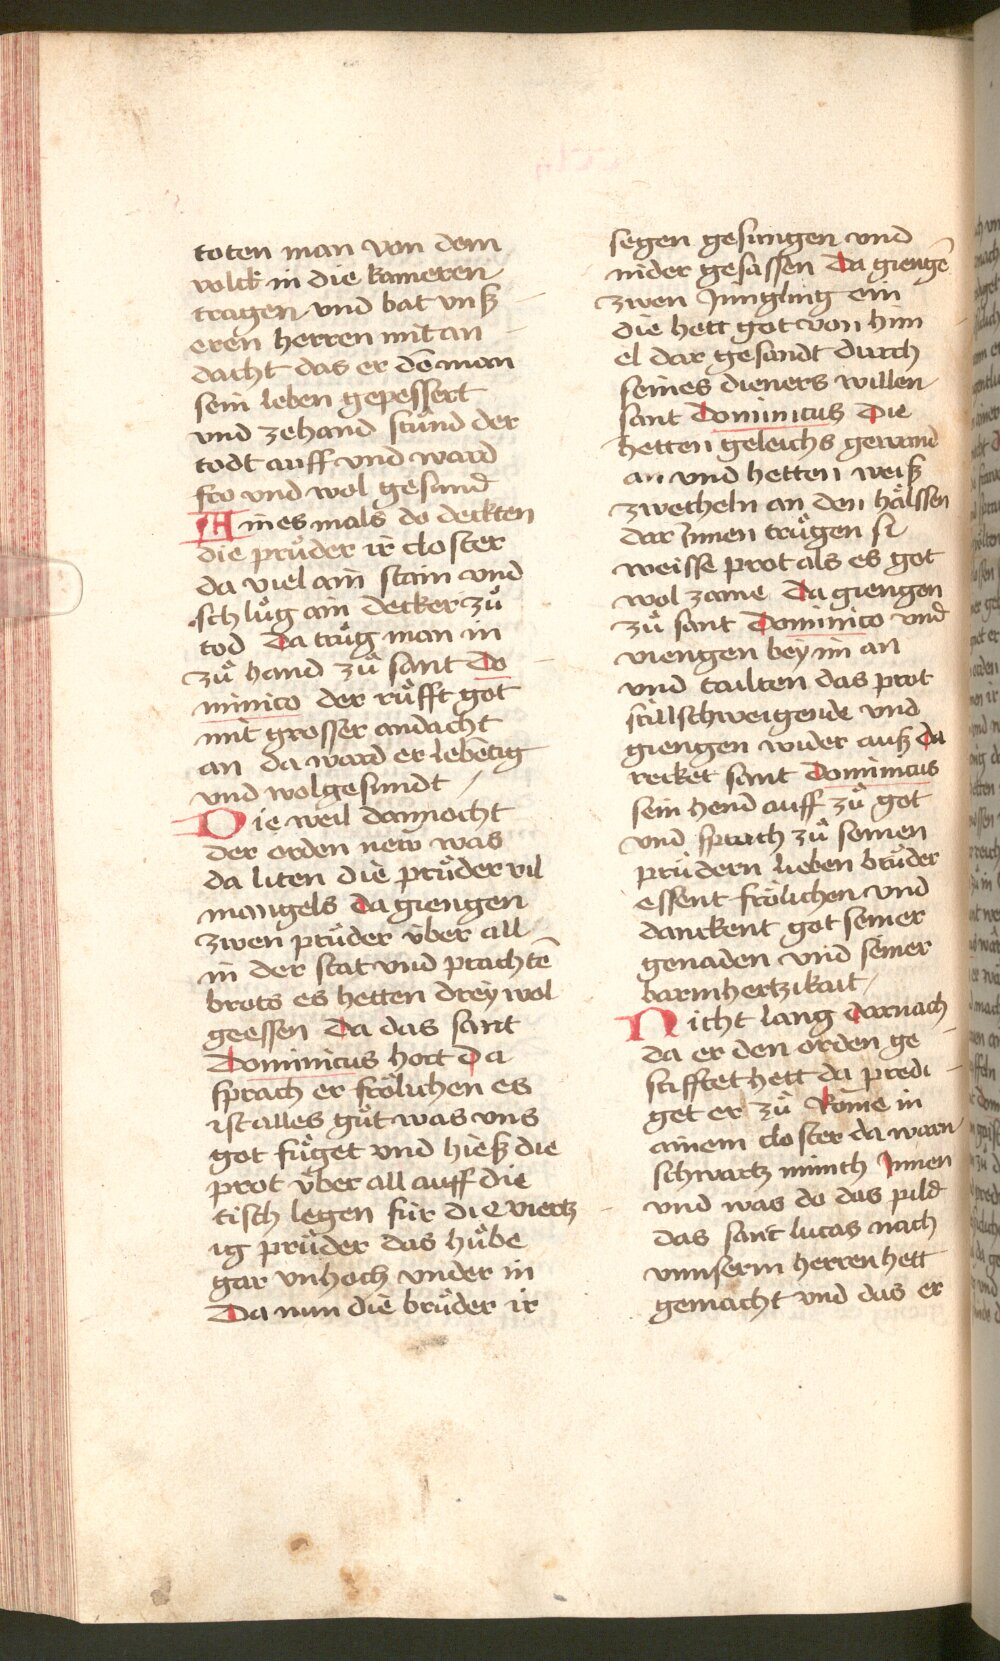 toten man von dem
volck in die kameren
tragen vnd bat vnß
eren herren mit an
dacht das er dē man
sein leben gepessert
vnd zehand stůnd der
todt auff vnd ward
fro vnd wol gesund
Aines mals do deckten
die průder ir closter
da viel ain stain vnd
schlůg ain decker zů
tod Da trůg man in
zů hand zů sant Do
minico der růfft got
mit grosser andacht
an da ward er lebētig
vnd wolgesundt /
Die weil dannocht
der orden new was
da liten die průder vil
mangels Da giengen
zwen průder v̈ber all
in der stat vnd prachtē
brots es hetten drey wol
geessen Da das sant
Dominicus hort Da
sprach er frölichen es
ist alles gůt was vns
got fůget vnd hieß die
prot v̈ber all auff die
tisch legen für die viertz
ig průder das hůbe
gar vnhoch vnder in
Da nun die brůder ir
segen gesungen vnd
nider gesassen Da giengē
zwen Jungling ein
die hett got von him
el dar gesandt durch
seines dieners willen
sant Dominicus Die
hetten geleichs gewand
an vnd hetten weiß
zwecheln an den hälssen
dar Innen trůgen si
weisse prot als es got
wol zame Da giengen
zů sant Dominico vnd
viengen bey im an
vnd tailten das prot
stillschweigende vnd
giengen wider auß Da
recket sant Dominicus
sein hend auff zů got
vnd sprach zů seinen
průdern lieben brůder
essent frölichen vnd
danckent got seiner
genaden vnd seiner
barmhertzikait /
Nicht lang darnach
da er den orden ge
stifftet hett da predi
get er zů Rome in
ainem closter da warn
schwartz münch Jnnen
vnd was do das pild
das sant lucas nach
vnnserm herren hett
gemacht vnd das er